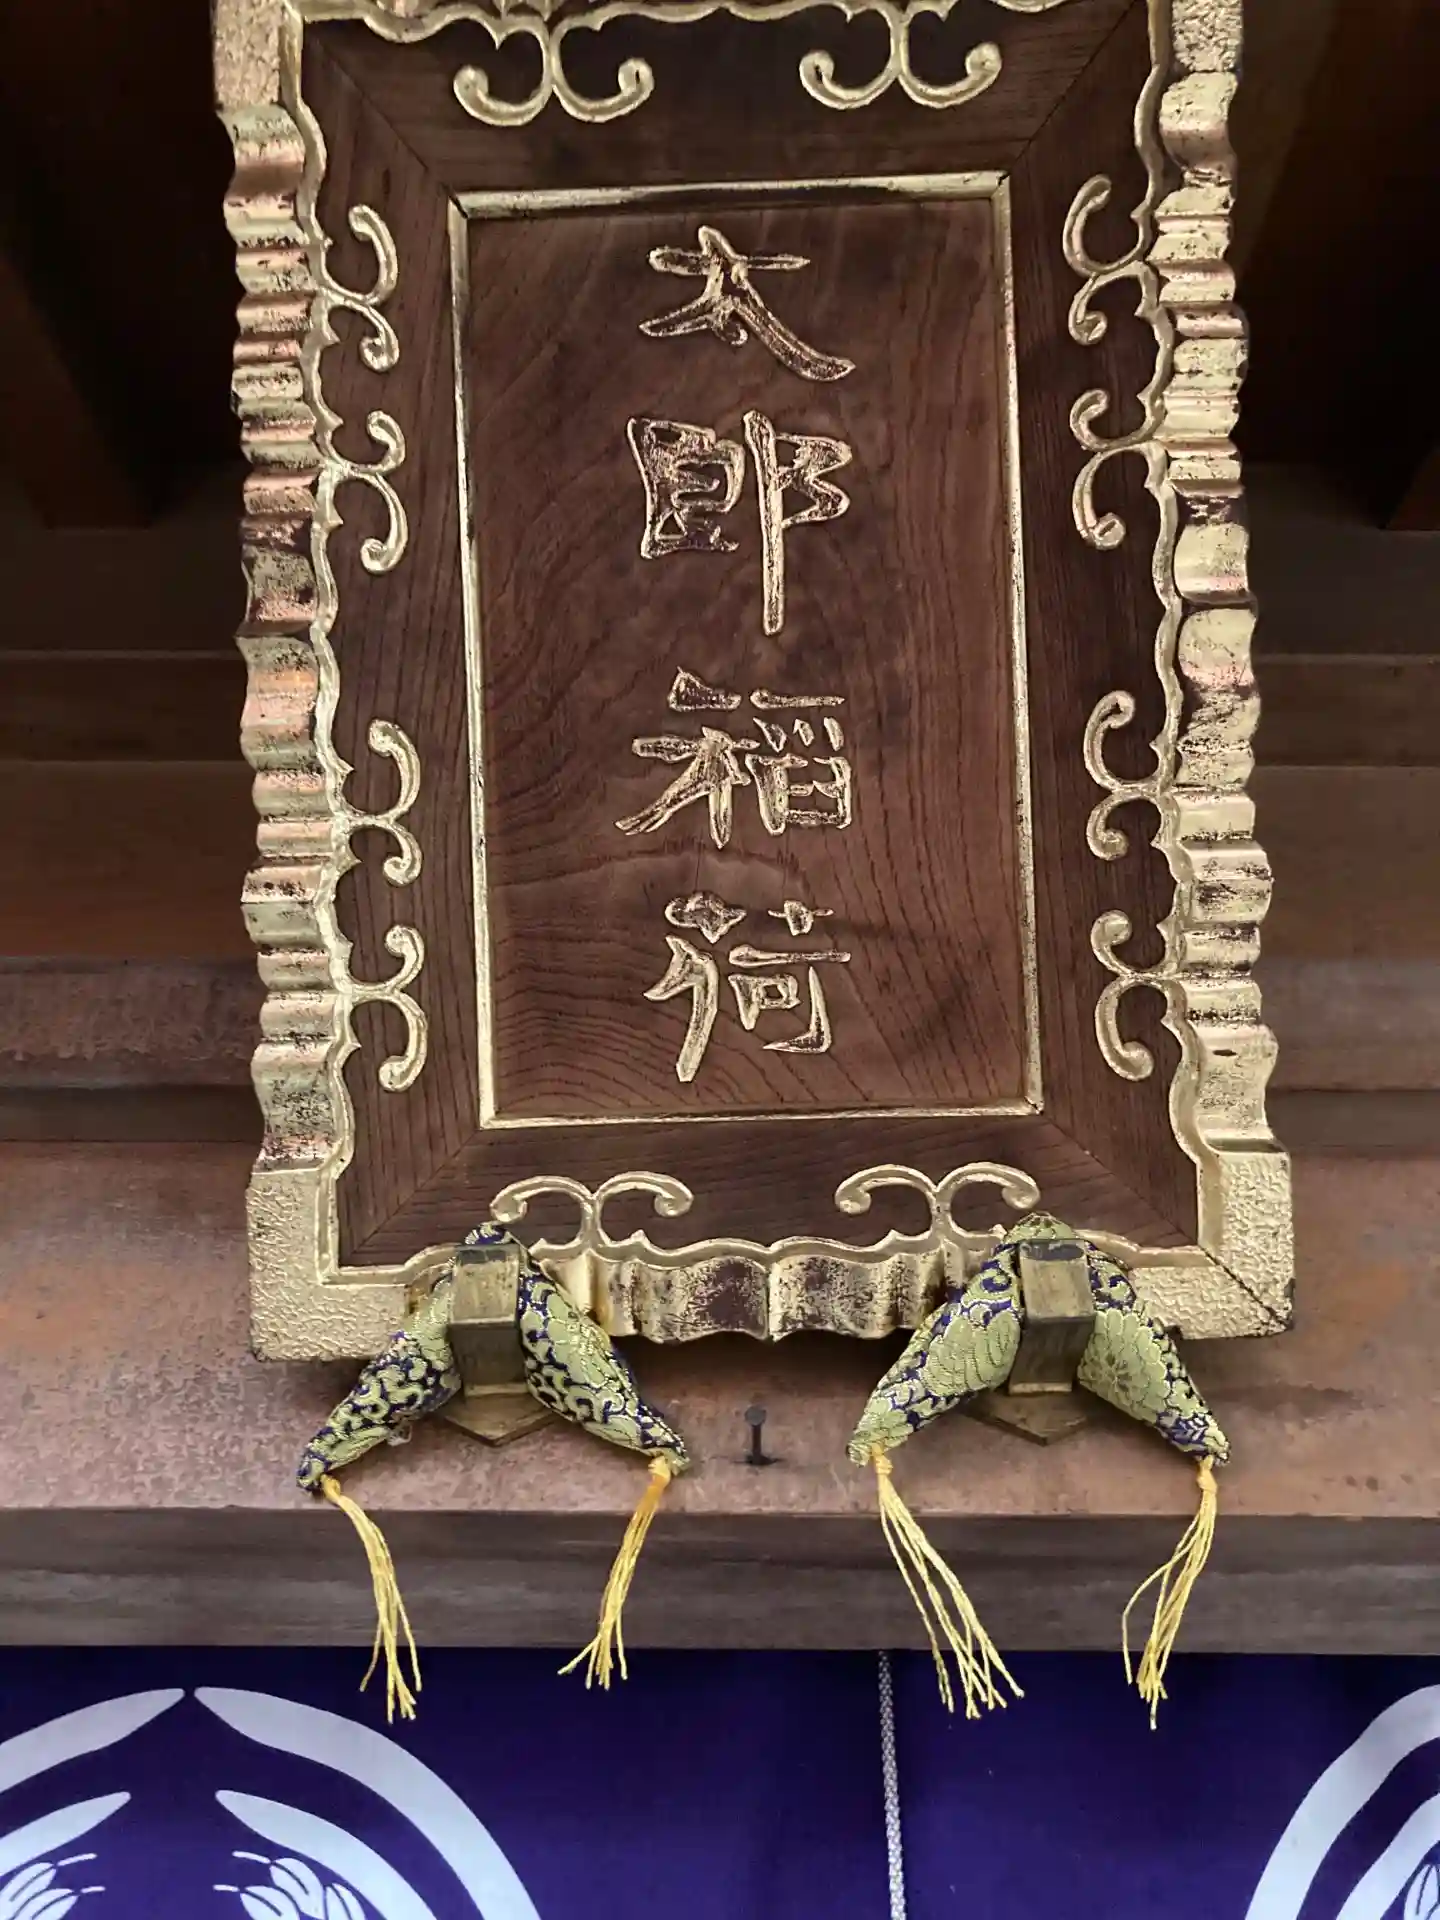 太郎稲荷